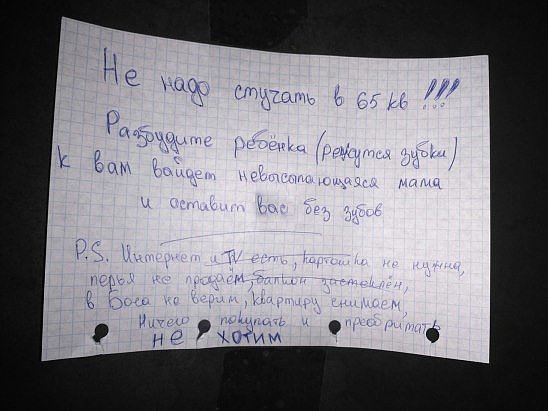 Не надо стучать в 65 кв !!!
Разбудите ребёнка (режутся зубки)
к вам вайдет невысыпающаяся мама
и оставит вас без зубов
P.S. Интернет и TV есть, картошка не нужна,
перья не продаём, балкон застеклён,
в Бога не верим, квартиру снимаем,
Ничего покупать и преобритать
не хотим